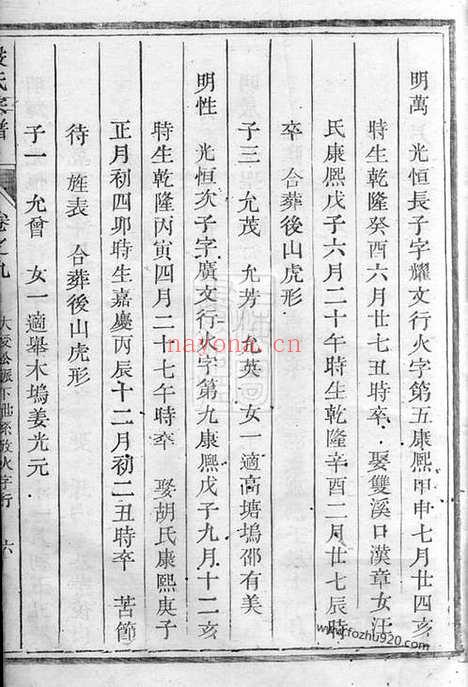 明萬　光恒長子字耀文行火字第五康熙甲申七月廿四亥
時生乾隆癸酉六月廿七丑時卒．娶雙溪口漢章女汪
氏康熙戊子六月二十午時生乾隆辛酉二月廿七辰時
卒　合葬後山虎形
子三　允茂　允芳　允英　女一適高塘塢邵有美
明性　光恒次子字廣文行火字第九康熙戊子九月十二亥
時生乾隆丙寅四月二十七午時卒　娶胡氏康熙庚子
正月初四卯時生嘉慶丙辰十二月初二丑時卒　苦節
待　旌表　合葬後山虎形
子一　允曾　女一適舉木塢姜光元
氏宗譜
卷之九
火字行
六
nayona.cn
www.fozhu920.com